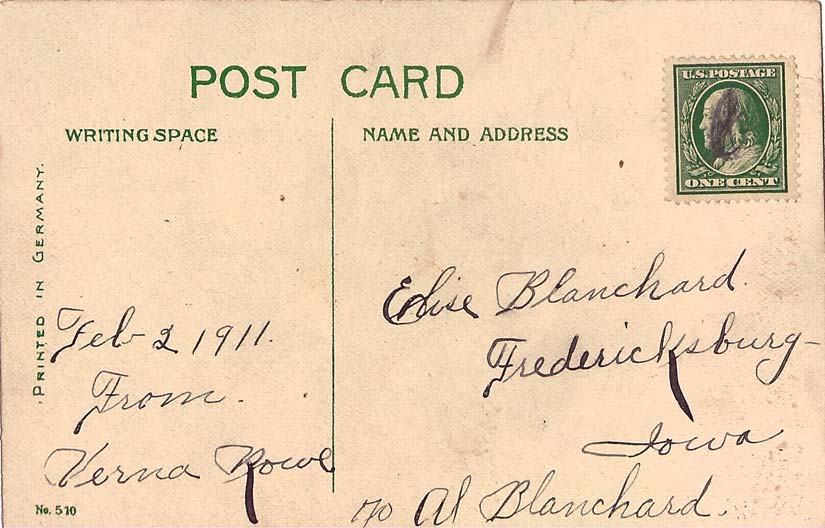 POST CARD
WRITING SPACE
NAME AND ADDRESS
U.S. POSTAGE
ONE CENT
PRINTED IN GERMANY.
Feb 2 1911.
From
Verna Rowe
No. 510
Elise Blanchard.
Fredericksburg
Iowa
c/o Al Blanchard.